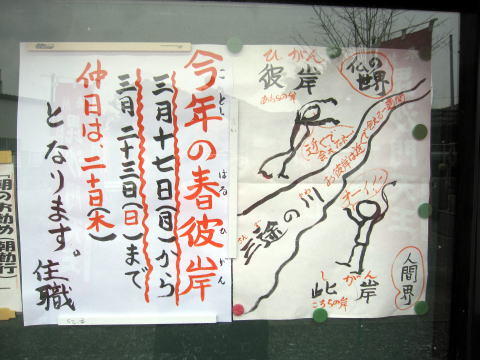 今年の春彼岸
ことし
はる
ひ
がん
三月十七日(月)から
三月二十三(日)まで
仲日は、二十日(木)
となります。
住職
ひがん
彼岸
あちらの岸
仏の世界
近くて
お彼岸は近くて
三途の川
オーイ
しがん
此岸
こちらの岸
人間界
朝のお勤め